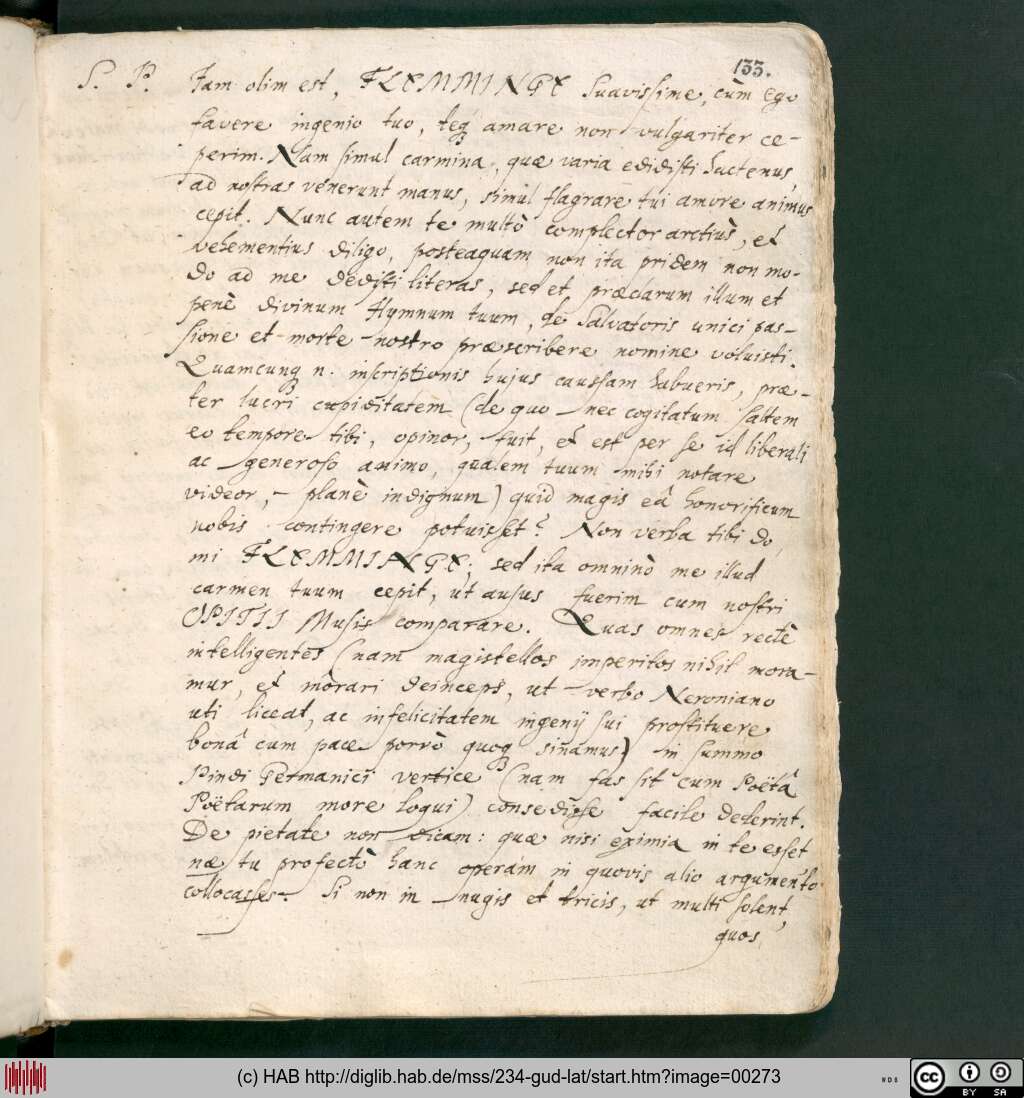 133.
S. P. Jam olim est, FLEMMINGE Suavissime, cùm ego
favere ingenio tuo, teq́ amare non vulgariter ce-
perim. Nam simul carmina, quæ varia edidisti hactenus,
ad nostras venerunt manus, simul flagrare tui amore animus
cepit. Nunc autem te multò complector arctiùs, et
vehementius diligo, posteaquam non ita pridem non mo-
do ad me dedisti literas, sed et præclarum illum et
penè divinum Hymnum tuum, de Salvatoris unici pas-
sione et morte nostro præscribere nomine voluisti.
Quamcunq n. inscriptionis hujus caussam habueris, præ-
ter lucri cupiditatem (de quo nec cogitatum saltem
eo tempore tibi, opinor, fuit, et est per se id liberali
ac generoso animo, qualem tuum mihi notare
videor, planè indignum) quid magis eâ honorificum
nobis contingere potuisset? Non verba tibi do,
mi FLEMMINGE; sed ita omninò me illud
carmen tuum cepit, ut ausus fuerim cum nostri
OPITII Musis comparare. Quas omnes rectè
intelligentes (nam magistellos imperitos nihil mora-
mur, et morari deinceps, ut verbo Neroniano
uti liceat, ac infelicitatem ingenij sui prostituere
bonâ cum pace porrò quoq sinamus) in summo
Pindi Germanici vertice (nam fas sit cum Poëtâ
Poëtarum more loqui) consedisse facile dederint.
De pietate non dicam: quæ nisi eximia in te esset
næ tu profectò hanc operam in quovis alio argumento
collocasses. Si non in nugis et tricis, ut multi solent,
quos
(c) HAB http://diglib.hab.de/mss/234-gud-lat/start.htm?image=00273
WDB
cc BY SA